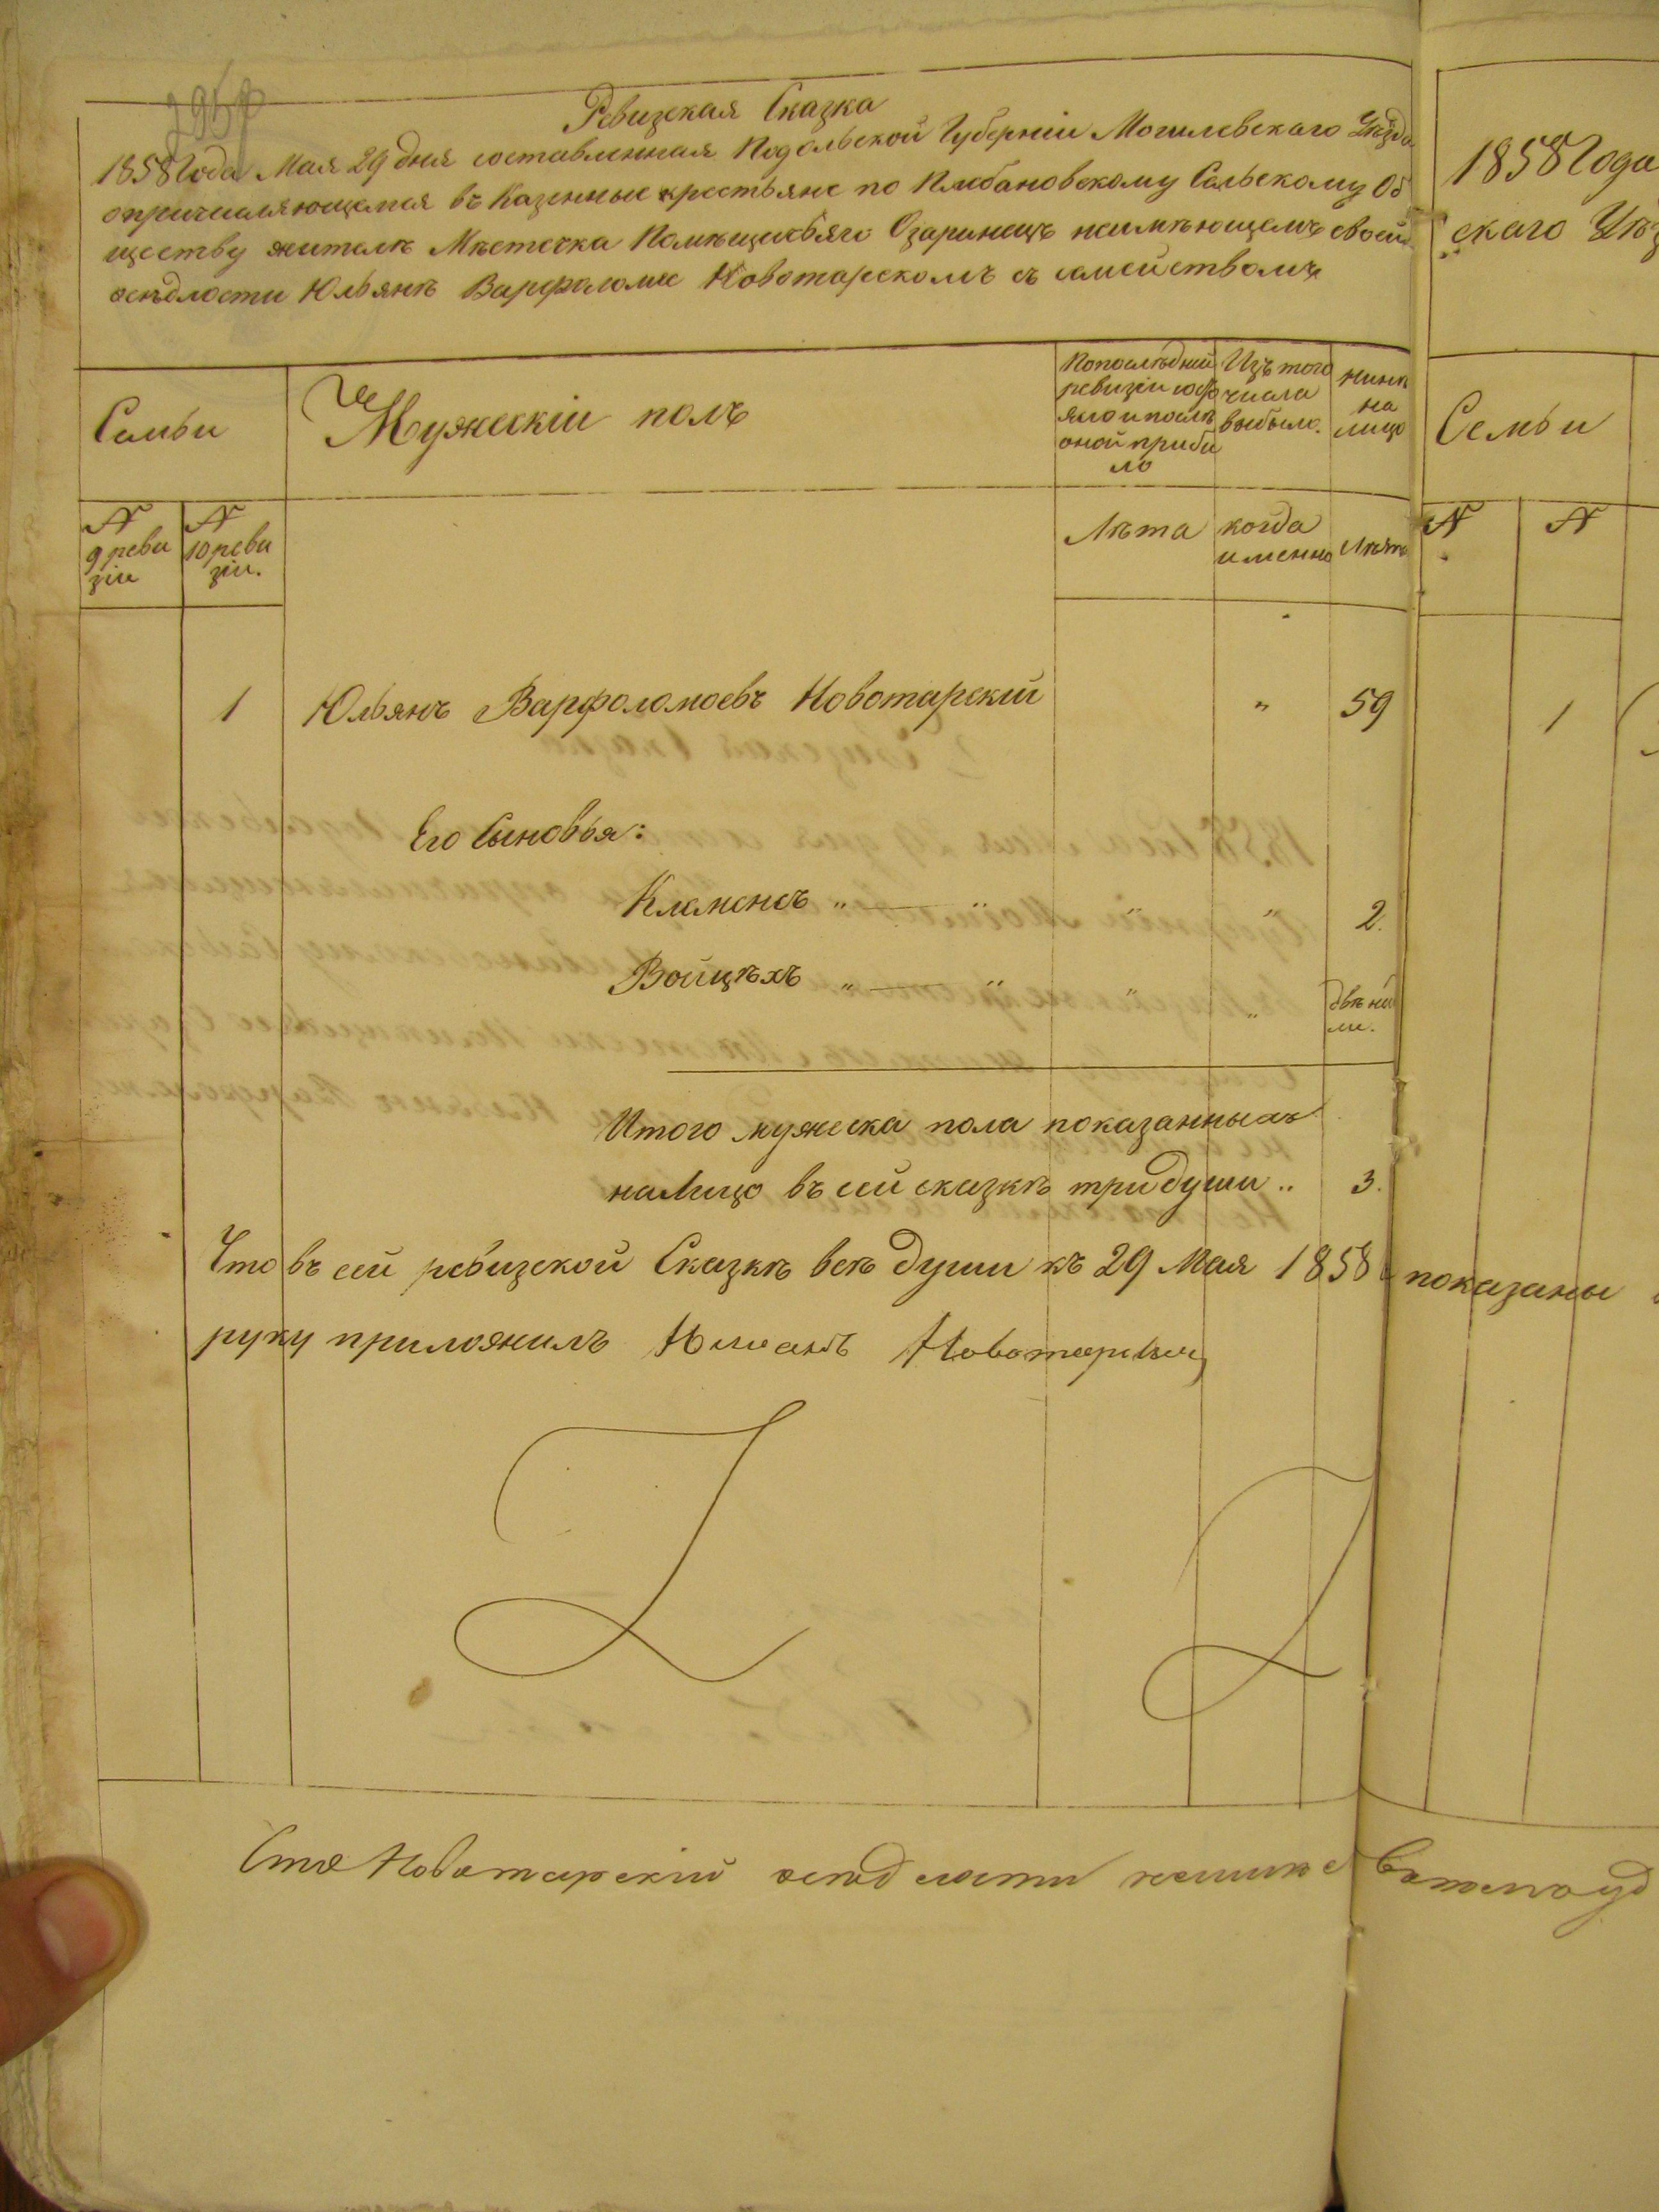 Ревизская Сказка
1858 Года Мая 29 дня составленная Подольской Губерніи Могилевскаго Уѣзда
о причисляющемся въ Казенные крестьяне по Плебановскому Сельскому Об
ществу жителѣ Мѣстечка Помѣщичьяго Озаринецъ неимѣющемъ своей
осѣдлости Юльянѣ Варфоломее Новотарскомъ съ семействомъ
Семьи
Мужескій полъ
По последней
ревизіи состо
яло и послѣ
оной прибы
ло
Изъ того
числа
выбыло.
Нынѣ
на
лицо
N
9 реви
зіи
N
10 реви
зіи.
Лѣта
когда
именно
Лѣта
1 Юльянъ Варфоломеевъ Новотарскій " 59
Его Сыновья:
Клеменсъ " — " " " 2.
Войцѣхъ " — " " " двѣ не
ли.
Итого мужеска пола показанныхъ
на лицо въ сей сказкѣ три души .. 3.
Что въ сей ревизской Сказкѣ всѣ души къ 29 Мая 1858 показаны
руку приложилъ Юлианъ Новотарскій
Новотарскій осѣдлости
1858 Года
скаго Уѣз
Семьи
N N
1